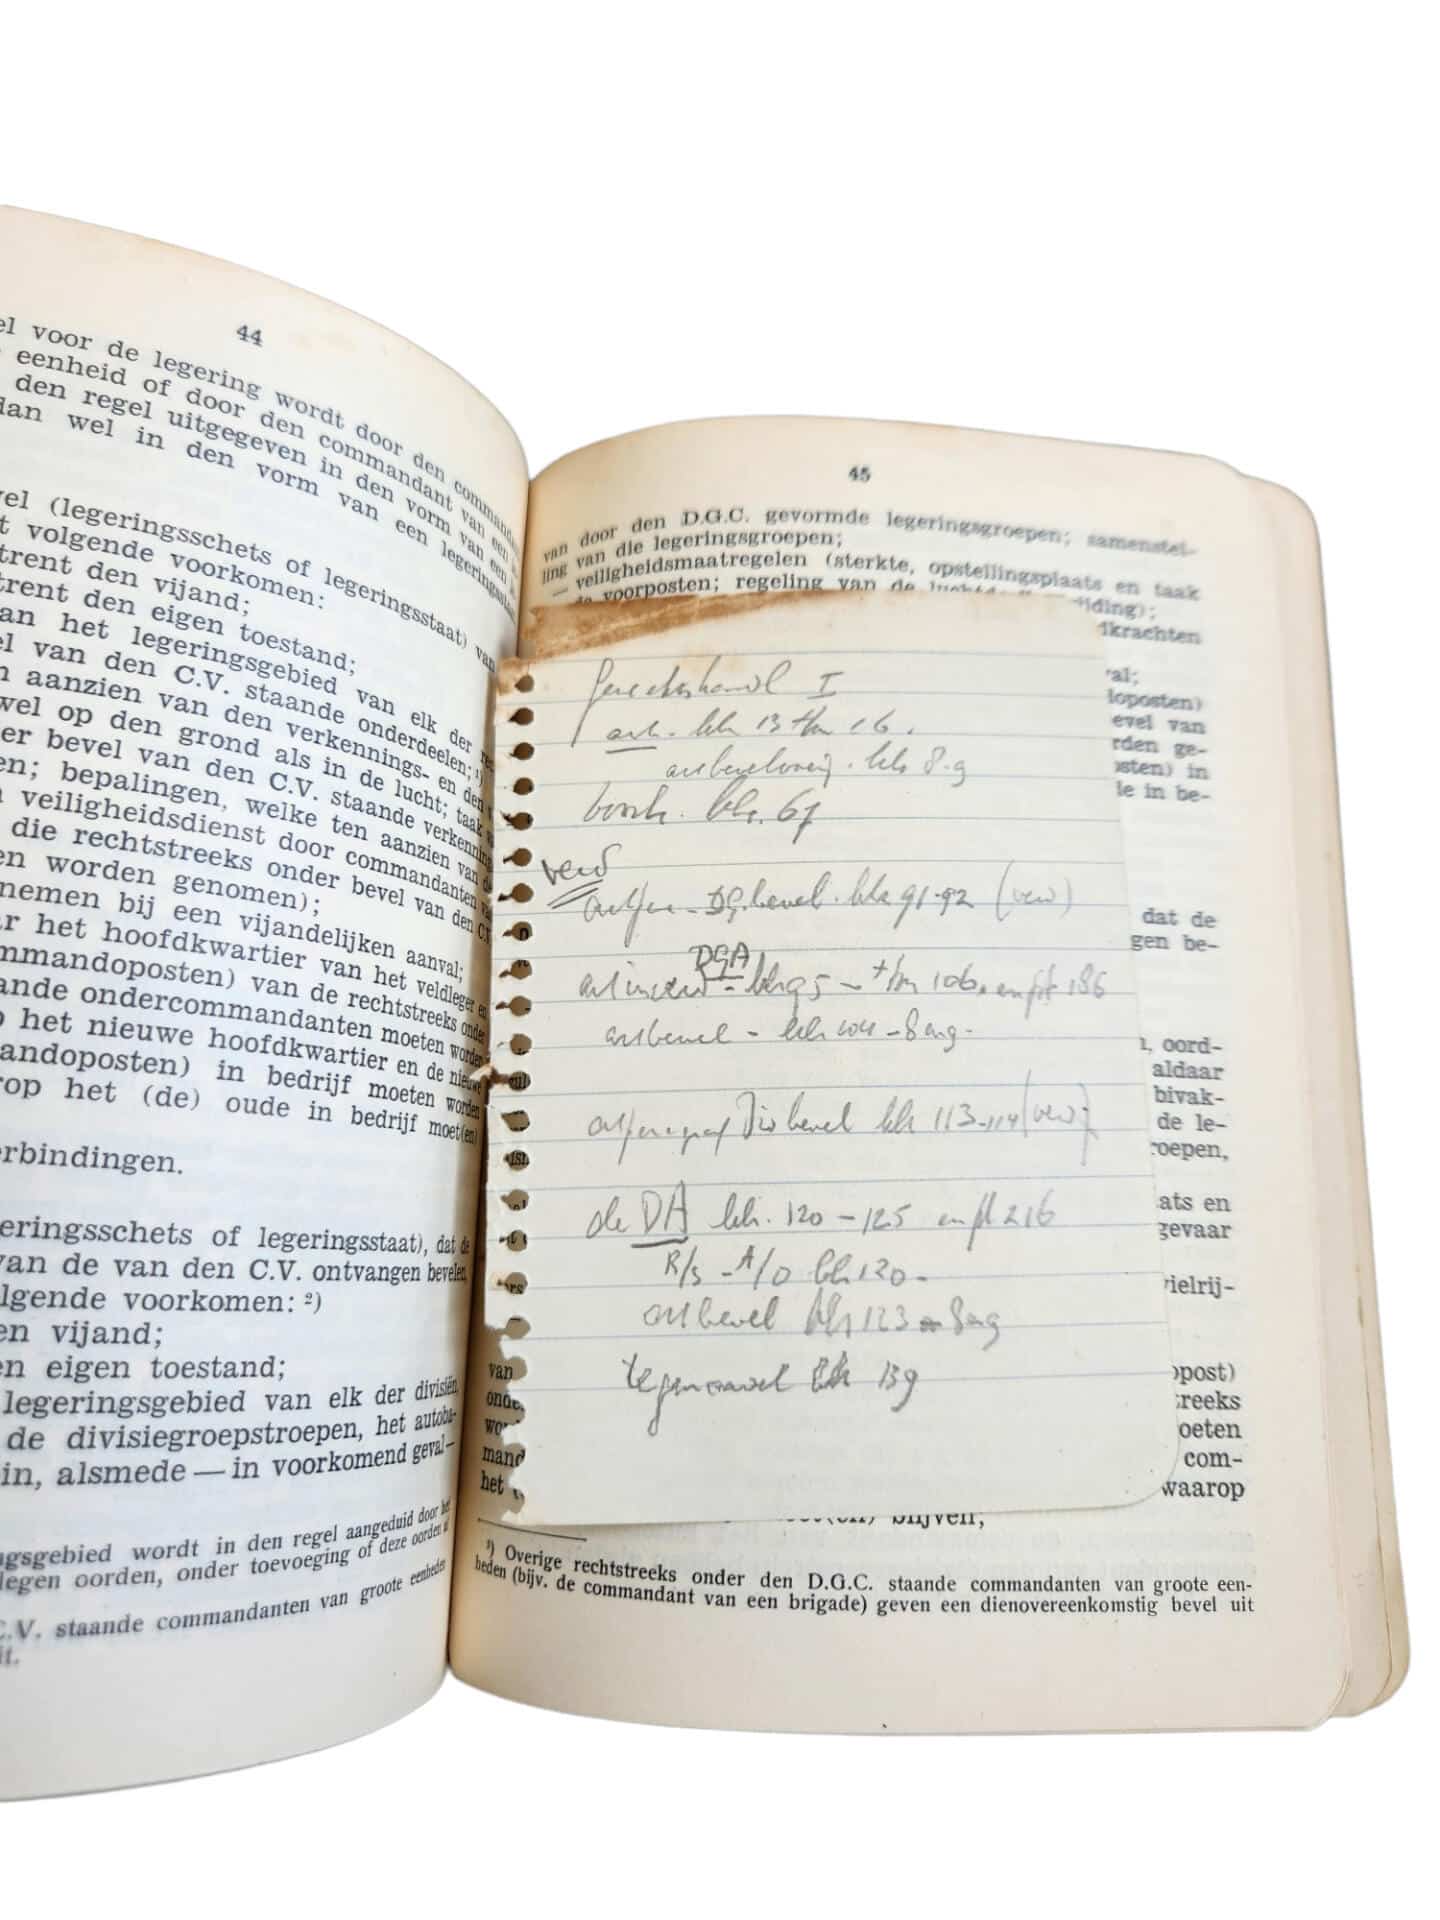 44
el voor de legering wordt door den commandant
eenheid of door den commandant van een
den regel uitgegeven in den vorm van een
dan wel in den vorm van een legerings
vel (legeringsschets of legeringsstaat) van
t volgende voorkomen:
trent den vijand;
trent den eigen toestand;
an het legeringsgebied van elk der
el van den C.V. staande onderdeelen; ¹)
n aanzien van den verkennings- en den
wel op den grond als in de lucht; taak
er bevel van den C.V. staande verkennings
en; bepalingen, welke ten aanzien van de
n veiligheidsdienst door commandanten van
die rechtstreeks onder bevel van den C.V.
en worden genomen);
nemen bij een vijandelijken aanval;
ar het hoofdkwartier van het veldleger en
mmandoposten) van de rechtstreeks onder
ande ondercommandanten moeten worden
p het nieuwe hoofdkwartier en de nieuwe
andoposten) in bedrijf moeten worden
rop het (de) oude in bedrijf moet(en)
erbindingen.
eringsschets of legeringsstaat), dat de
van de van den C.V. ontvangen bevelen,
lgende voorkomen: ²)
en vijand;
en eigen toestand;
legeringsgebied van elk der divisiën,
de divisiegroepstroepen, het autoba-
in, alsmede — in voorkomend geval —
ngsgebied wordt in den regel aangeduid door het
legen oorden, onder toevoeging of deze oorden al
C.V. staande commandanten van groote eenheden
it.
45
van door den D.G.C. gevormde legeringsgroepen; samenstel-
ling van die legeringsgroepen;
— veiligheidsmaatregelen (sterkte, opstellingsplaats en taak
de voorposten; regeling van de lucht iding);
dkrachten
al;
loposten)
evel van
rden ge-
osten) in
le in be-
dat de
gen be-
, oord-
aldaar
bivak-
de le-
roepen,
ats en
gevaar
ielrij-
opost)
treeks
oeten
com-
waarop
van
onde
wo
mand
het
blijven;
Gevechtshandl I
art. blz 13 t/m 16.
blz 8.g
blz. 67
verd
DG.bevel. blz 91-92 (verd)
DGA
blz 95 - t/m 106. en pt 186
artbevel - blz 104 - 8 ang.
Div bevel blz 113-114 (verd)
de DA blz. 120 - 125 en pt 216
R/s - A/O blz 120 -
artbevel blz 123 8ang
tegenaanval blz 139
³) Overige rechtstreeks onder den D.G.C. staande commandanten van groote een-
heden (bijv. de commandant van een brigade) geven een dienovereenkomstig bevel uit